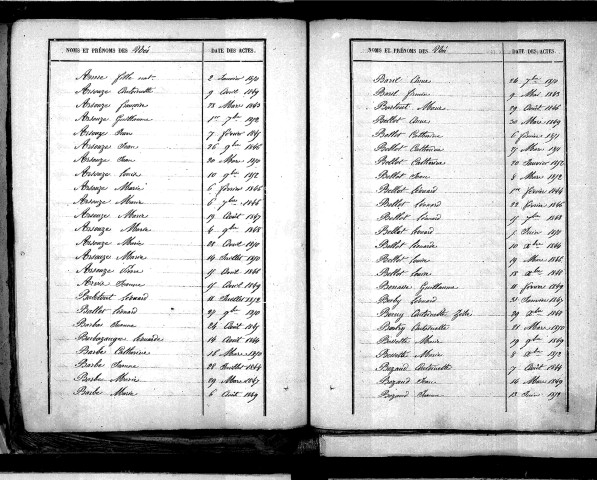 NOMS ET PRÉNOMS DES Nés DATE DES ACTES.
Anne fille nat. 2 Janvier 1870
Arsouze Antoinette 9 Avril 1869
Arsouze françoise 23 Mars 1863
Arsouze Guillaume 1er 7bre 1872
Arsouze Jean 7 février 1867
Arsouze Jean 26 9bre 1866
Arsouze Jean 20 Mars 1870
Arsouze Louise 10 9bre 1872
Arsouze Marie 6 février 1866
Arsouze Marie 6 7bre 1866
Arsouze Marie 19 Août 1867
Arsouze Marie 6 9bre 1868
Arsouze Marie 28 Avril 1870
Arsouze Marie 14 Juillet 1870
Arsouze Pierre 17 Avril 1868
Jeanne 17 Avril 1869
Léonard 11 Juillet 1872
Ballot Léonard 27 9bre 1870
Barbe Jeanne 24 Août 1867
Barlazanges Léonarde 14 Août 1864
Barbe Catherine 18 Mars 1870
Barbe Jeanne 28 Juillet 1864
Barbe Marie 29 Mars 1867
Barbe Marie 6 Août 1869
NOMS ET PRÉNOMS DES Nés DATE DES ACTES.
Barel Anne 26 7bre 1870
Barel 9 Mai 1863
Marie 29 Août 1866
Bellot Anne 30 Mars 1869
Bellot Catherine 6 février 1871
Bellot Catherine 27 Mars 1871
Bellot Catherine 20 Janvier 1872
Bellot Jean 8 Mars 1872
Bellot Léonard 1er février 1864
Bellot Léonard 22 février 1866
Bellot Léonard 17 7bre 1868
Bellot Léonard 5 Juin 1870
Bellot Léonarde 10 Xbre 1864
Bellot Louise 19 Mars 1862
Bellot Louise 18 Xbre 1868
Guillaume 11 février 1869
Léonard 31 Janvier 1867
Antoinette 29 Xbre 1868
Antoinette 21 Mars 1870
Marie 19 9bre 1869
Marie 8 Xbre 1872
Bezaud Antoinette 7 Août 1864
Bezaud Jean 14 Mars 1869
Bezaud Jeanne 13 Juin 1872